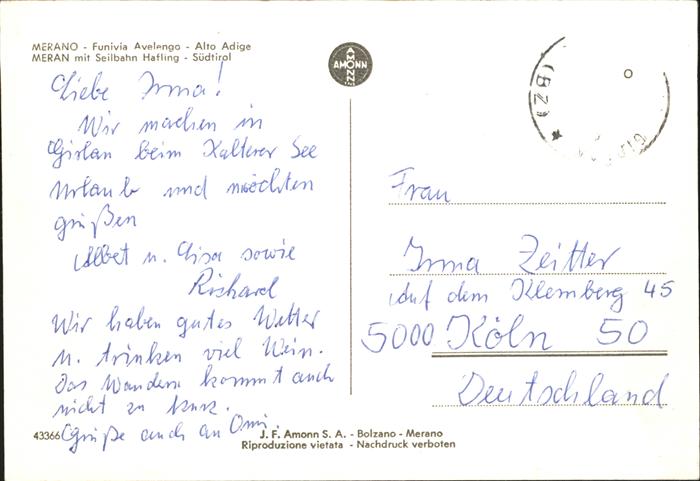 MERANO - Funivia Avelengo - Alto Adige
MERAN mit Seilbahn Hafling - Südtirol
AMONN
Liebe Irma!
Wir machen in
Girlan beim Kalterer See
Urlaub und möchten
grüßen
Albet u. Lisa sowie
Richard
Wir haben gutes Wetter
u. trinken viel Wein.
Das Wandern kommt auch
nicht zu kurz.
Grüße auch an Omi.
Frau
Irma Zeitter
Auf dem Klemberg 45
5000 Köln 50
Deutschland
(BZ)
43366
J. F. Amonn S. A. - Bolzano - Merano
Riproduzione vietata - Nachdruck verboten